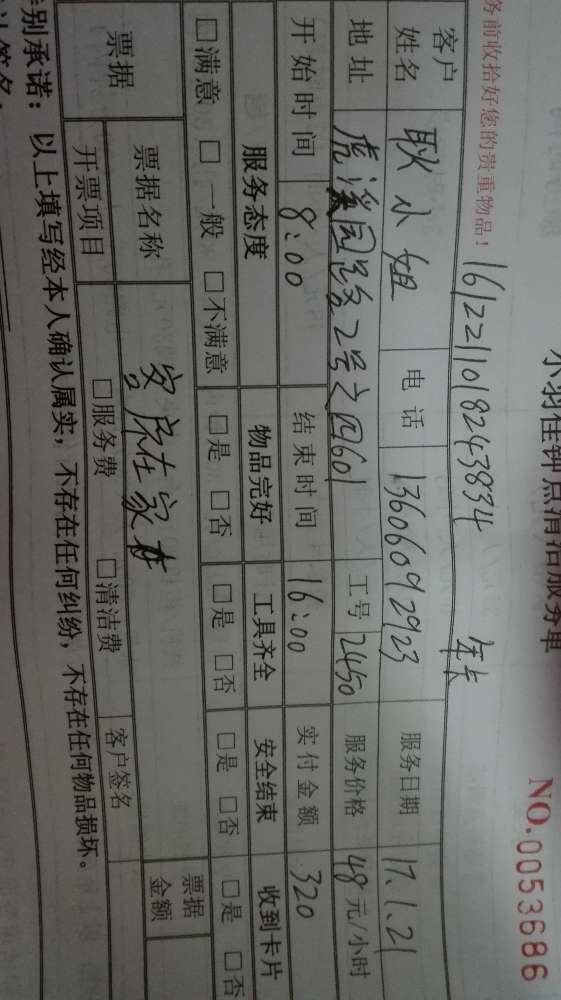 小羽佳钟点清洁服务单
NO.0053686
务前收拾好您的贵重物品! 1612211018243834 年卡
客户姓名 耿小姐 电话 13606092923 服务日期 17.1.21
地址 虎溪园路2号之四601 工号 2450 服务价格 48元/小时
开始时间 8:00 结束时间 16:00 实付金额 320
服务态度 物品完好 工具齐全 安全结束 收到卡片
□满意 □一般 □不满意 □是 □否 □是 □否 □是 □否 □是 □否
票据 票据名称 客户在家 票据金额
开票项目 □服务费 □清洁费 客户签名
特别承诺: 以上填写经本人确认属实,不存在任何纠纷,不存在任何物品损坏。